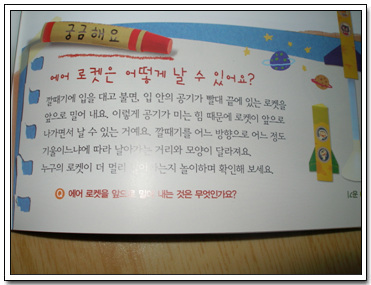 궁금해요
에어 로켓은 어떻게 날 수 있어요?
깔때기에 입을 대고 불면, 입 안의 공기가 빨대 끝에 있는 로켓을
앞으로 밀어 내요. 이렇게 공기가 미는 힘 때문에 로켓이 앞으로
나가면서 날 수 있는 거예요. 깔때기를 어느 방향으로 어느 정도
기울이느냐에 따라 날아가는 거리와 모양이 달라져요.
누구의 로켓이 더 멀리 놀이하며 확인해 보세요.
Q 에어 로켓을 내는 것은 무엇인가요?